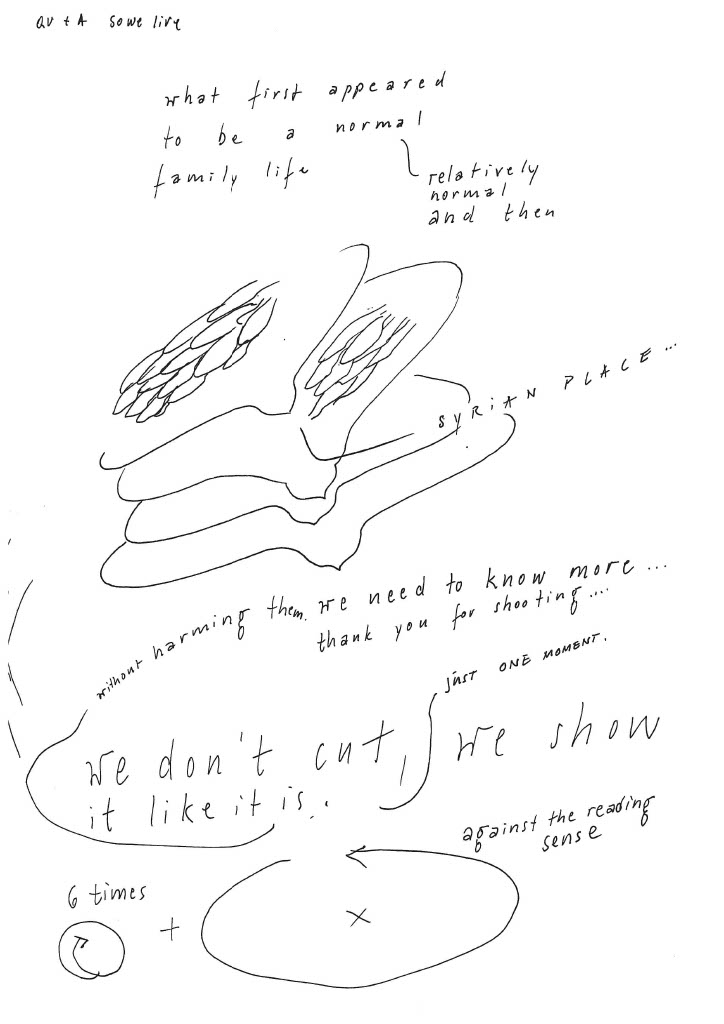 QU + A so we live
what first appeared
to be a normal
family life
relatively
normal
and then
SYRiAN PLACE...
without harming them. we need to know more...
thank you for shooting....
just ONE MOMENT.
we don't cut, we show
it like it is.
against the reading
sense
6 times
+
x